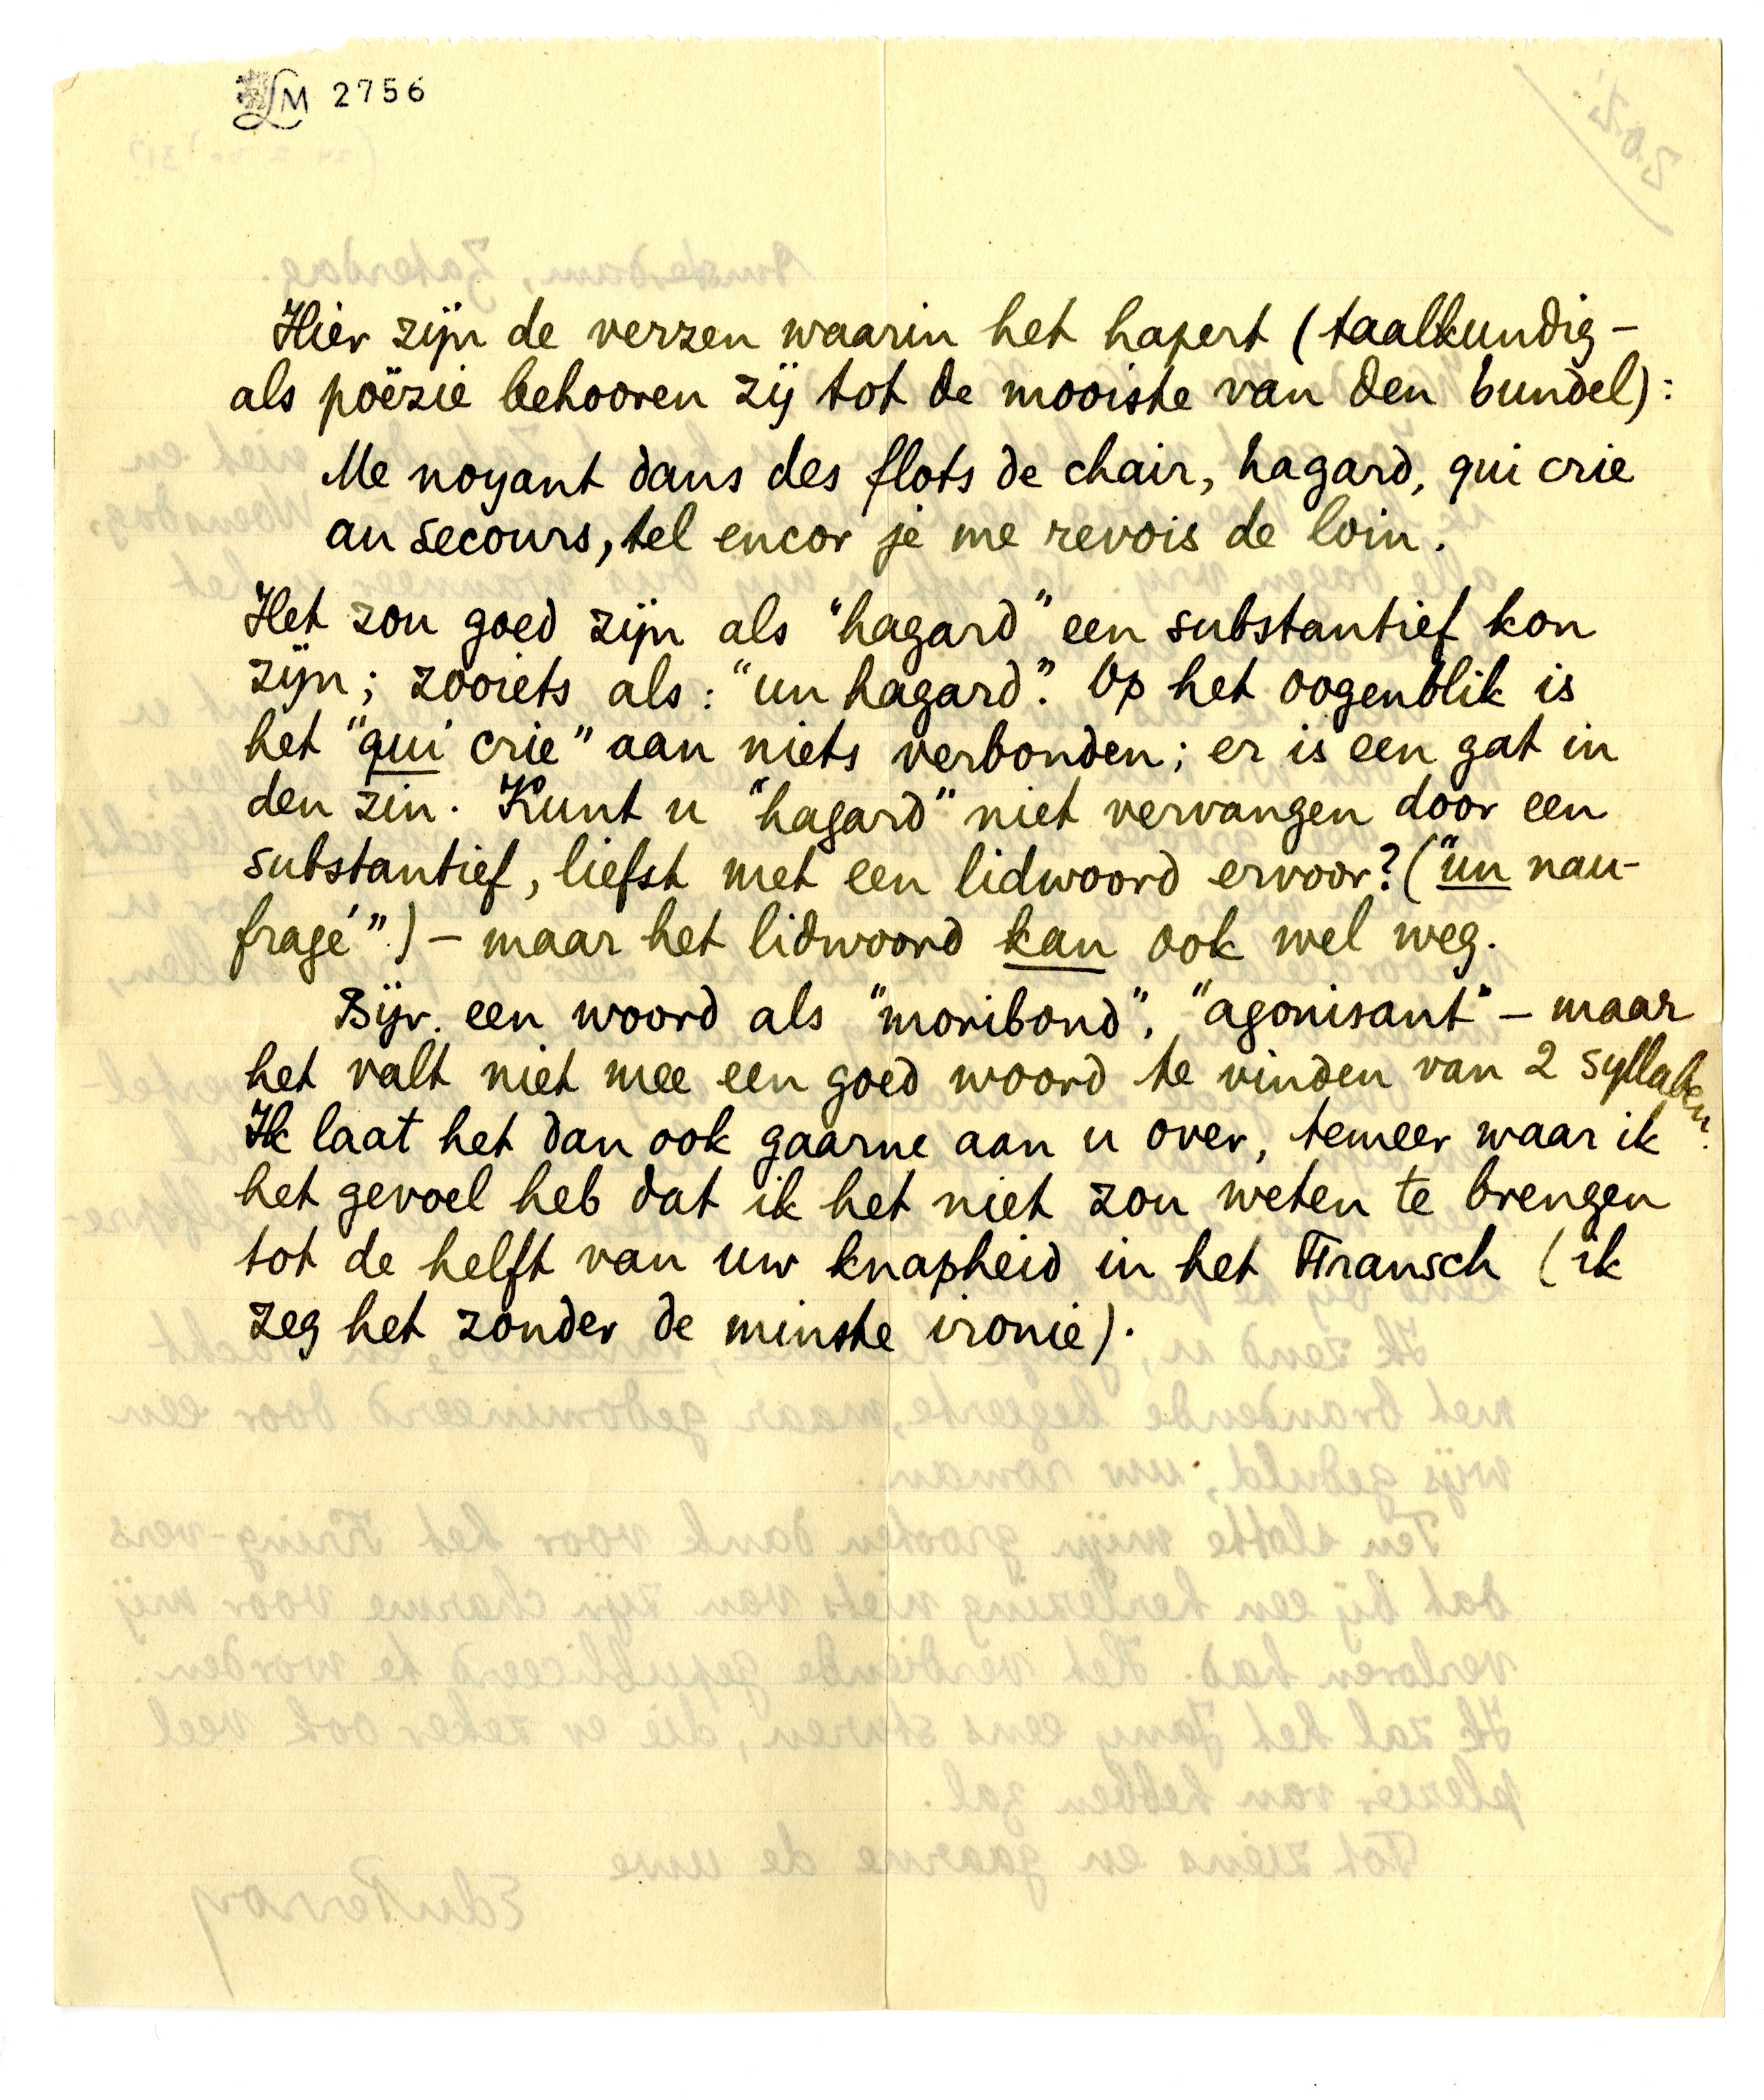 LM 2756
Hier zijn de verzen waarin het hapert (taalkundig –
als poëzie behooren zij tot de mooiste van den bundel):
Me noyant dans des flots de chair, hagard, qui crie
au secours, tel encor je me revois de loin.
Het zou goed zijn als "hagard" een substantief kon
zijn; zooiets als: "un hagard". Op het oogenblik is
het "qui crie" aan niets verbonden; er is een gat in
den zin. Kunt u "hagard" niet vervangen door een
substantief, liefst met een lidwoord ervoor? ("un nau-
fragé".) – maar het lidwoord kan ook wel weg.
Bijv. een woord als "moribond", "agonisant" – maar
het valt niet mee een goed woord te vinden van 2 syllaben.
Ik laat het dan ook gaarne aan u over, temeer waar ik
het gevoel heb dat ik het niet zou weten te brengen
tot de helft van uw knapheid in het Fransch (ik
zeg het zonder de minste ironie).